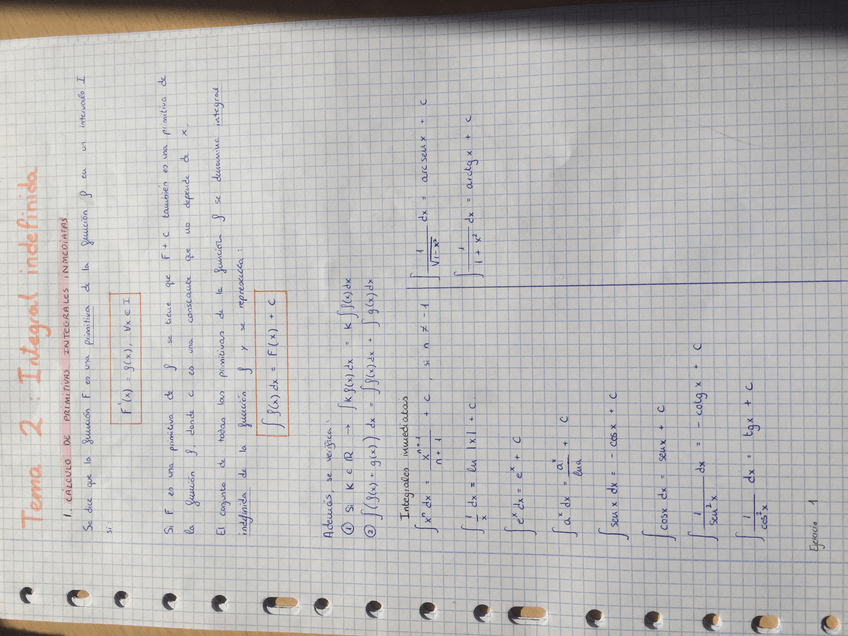 Tema 2: Integral indefinida
1. CÁLCULO DE PRIMITIVAS INTEGRALES INMEDIATAS
Se dice que la función F es una primitiva de la función f en un intervalo I
si
F'(x) = f(x), ∀x ∈ I
Si F es una primitiva de f se tiene que F + C también es una primitiva de
la función f, donde c es una constante que no depende de x.
El conjunto de todas las primitivas de la función f se denomina integral
indefinida de la función f y se representa:
∫ f(x) dx = F(x) + C
Además, se verifica:
① Si K ∈ ℝ → ∫ K f(x) dx = K ∫ f(x) dx
② ∫ (f(x) + g(x)) dx = ∫ f(x) dx + ∫ g(x) dx
Integrales inmediatas
∫ xⁿ dx = xⁿ⁺¹ / n + 1 + C, si n ≠ -1
∫ 1/x dx = ln |x| + C.
∫ eˣ dx = eˣ + C
∫ aˣ dx = aˣ / ln a + C
∫ sen x dx = - cos x + C
∫ cos x dx = sen x + C
∫ 1 / sen² x dx = - cotg x + C
∫ 1 / cos² x dx = tg x + C
∫ 1 / √(1 - x²) dx = arc sen x + C
∫ 1 / 1 + x² dx = arctg x + C
Ejercicio 1